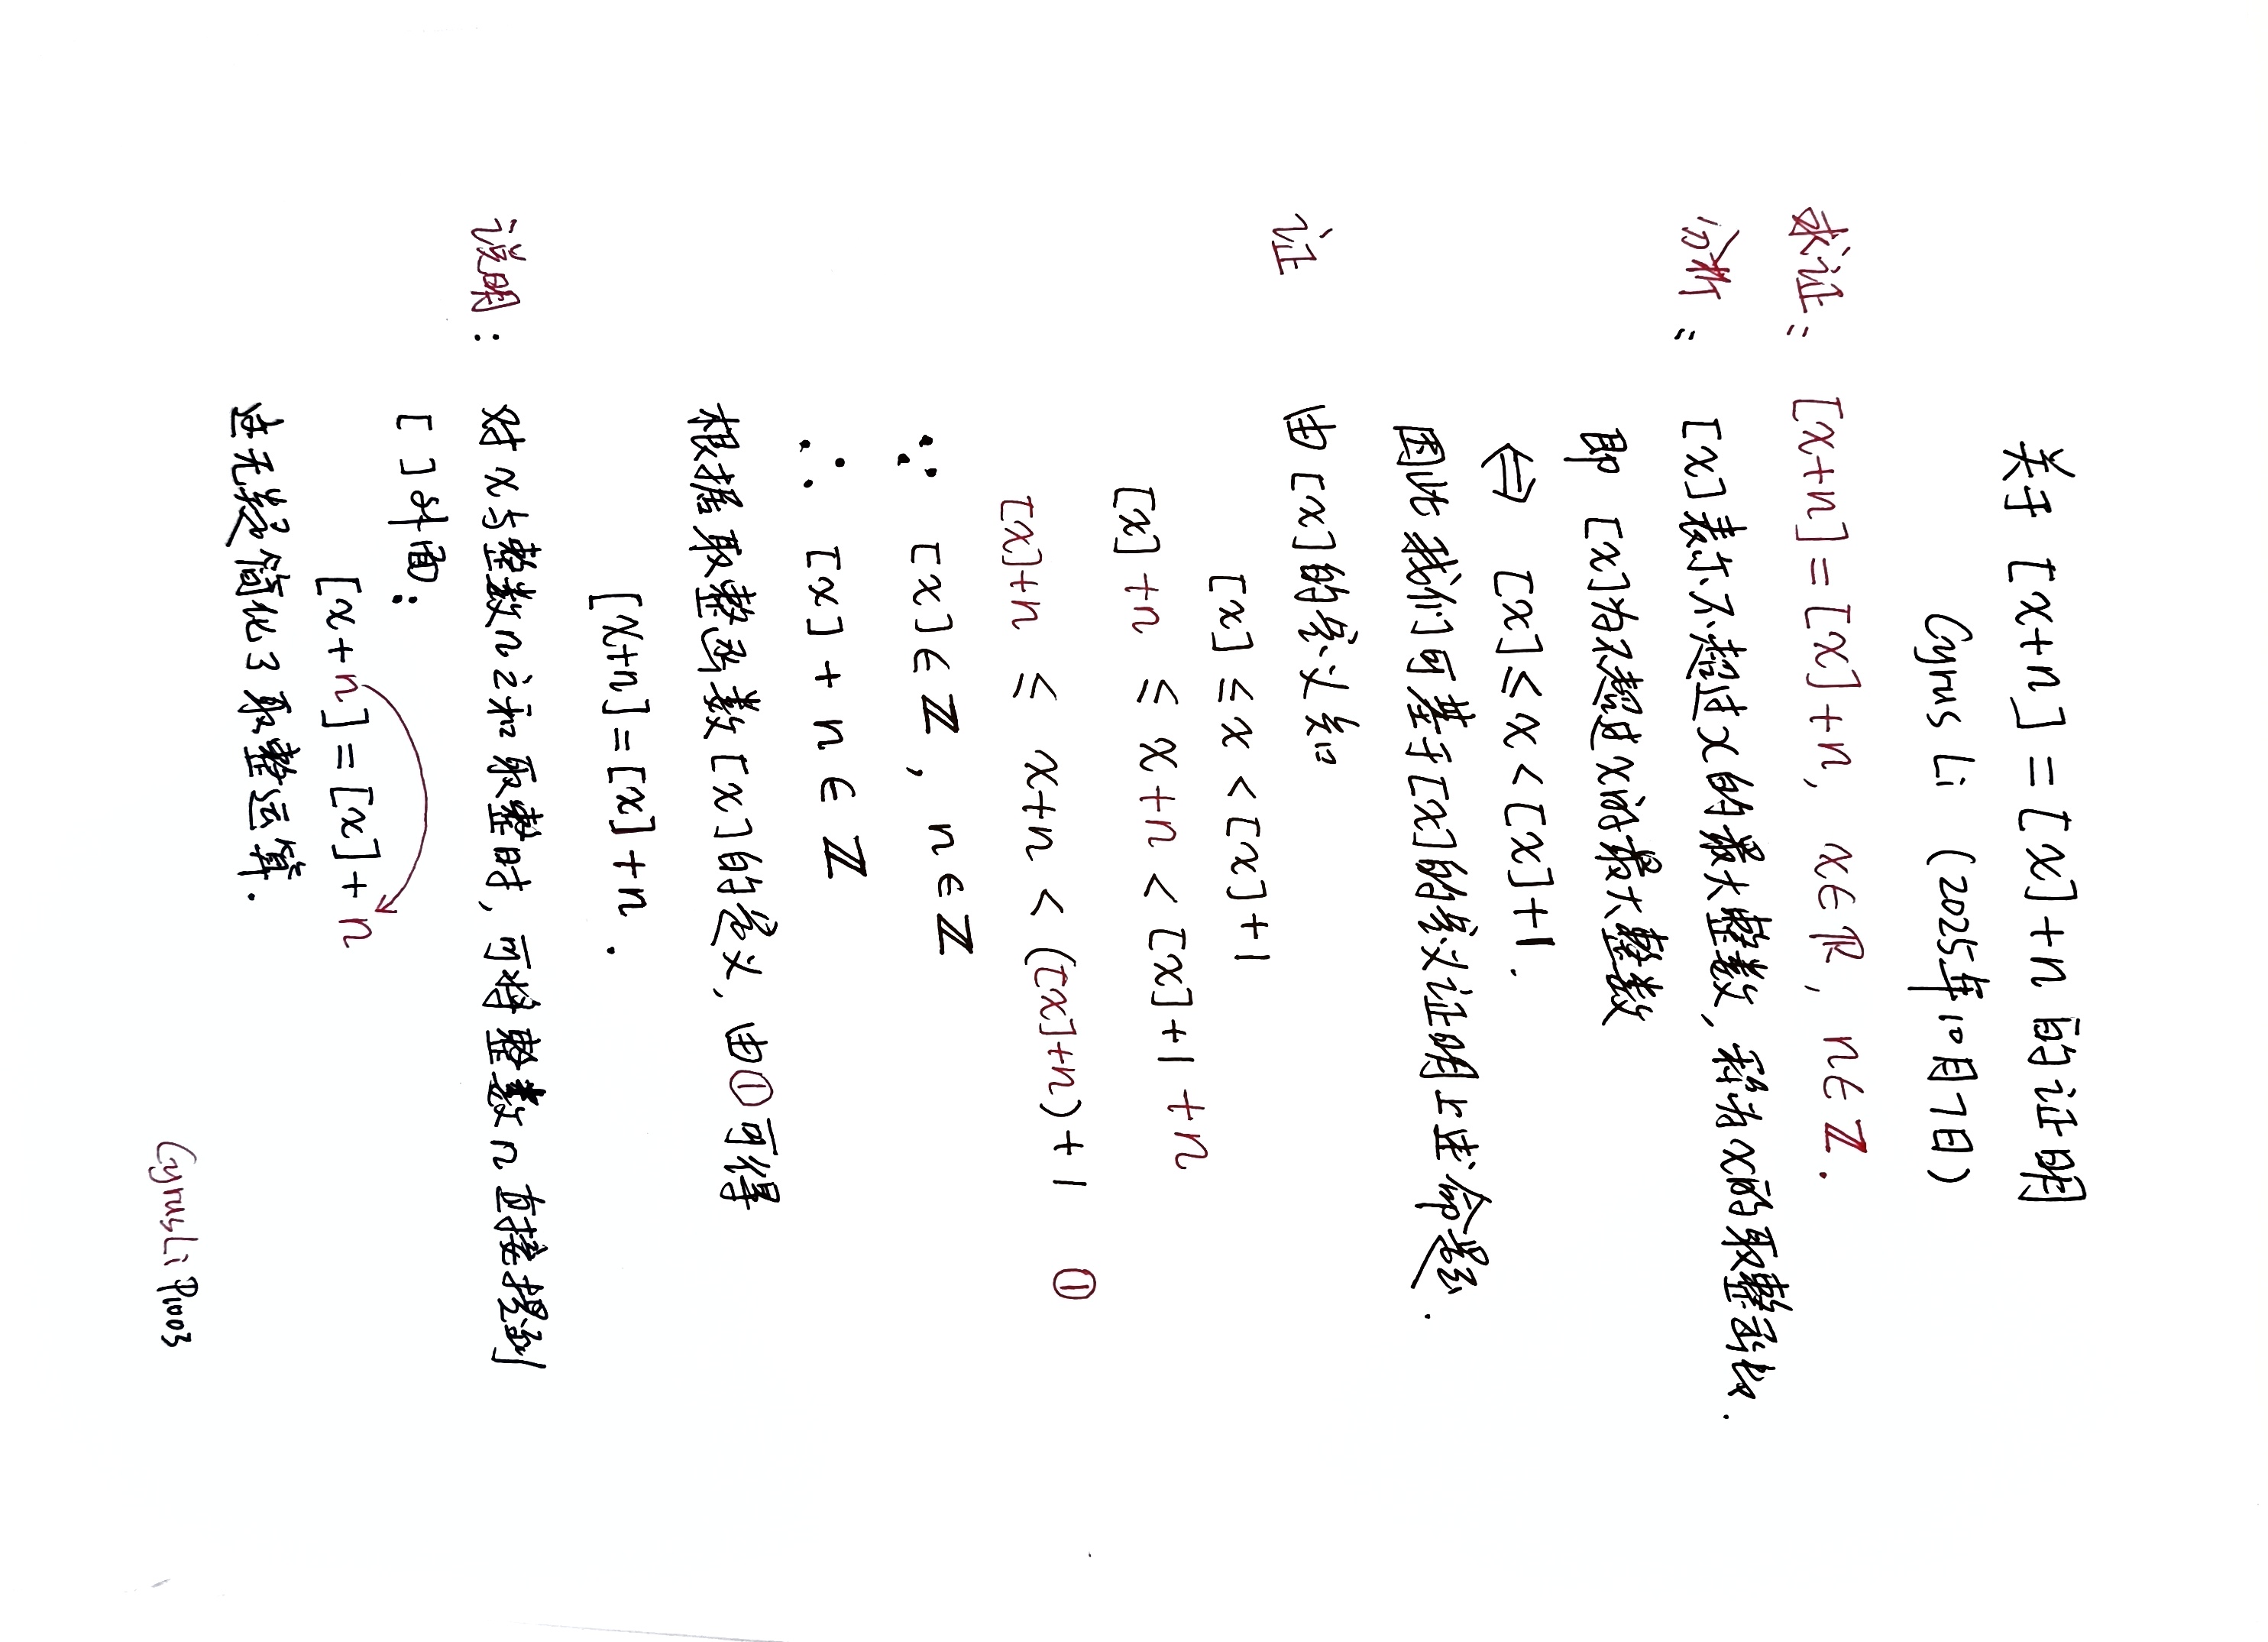 关于 [x+n]=[x]+n 的证明
Cyrus Li (2025年10月7日)
求证: [x+n]=[x]+n, x∈R, n∈Z.
分析: [x]表示不超过x的最大整数, 称为x的取整函数.
即 [x]为不超过x的最大整数
⇔ [x]≤x<[x]+1.
因此我们可基于[x]的定义证明上述命题.
证 由[x]的定义知
[x]≤x<[x]+1
[x]+n ≤ x+n < [x]+1+n
[x]+n ≤ x+n < ([x]+n)+1 ①
∵ [x]∈Z, n∈Z
∴ [x]+n∈Z
根据取整函数[x]的定义, 由①可得
[x+n]=[x]+n.
说明: 对x与整数n之和取整时, 可将整数n直接提到
[ ]外面:
[x+n]=[x]+n
这无疑简化了取整运算.
CyrusLiP1003